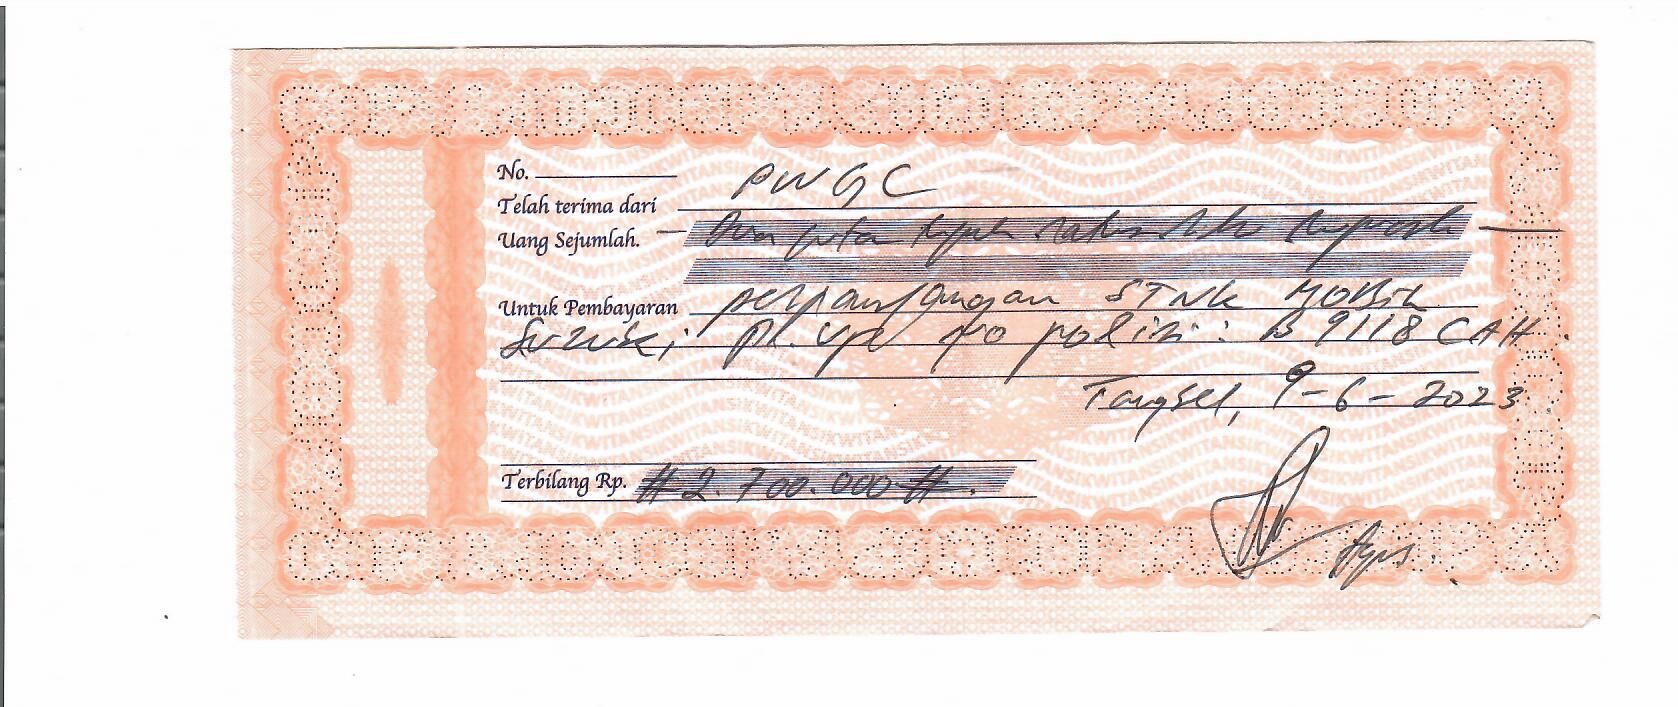 No.
Telah terima dari PWGC
Uang Sejumlah. - Dua juta tujuh ratus ribu rupiah -
Untuk Pembayaran perpanjangan STNK MOBIL
Suzuki; Pk. Up no polisi : B 9118 CAH
Tangsel, 9-6-2023
Terbilang Rp. # 2.700.000 #.
Agus.